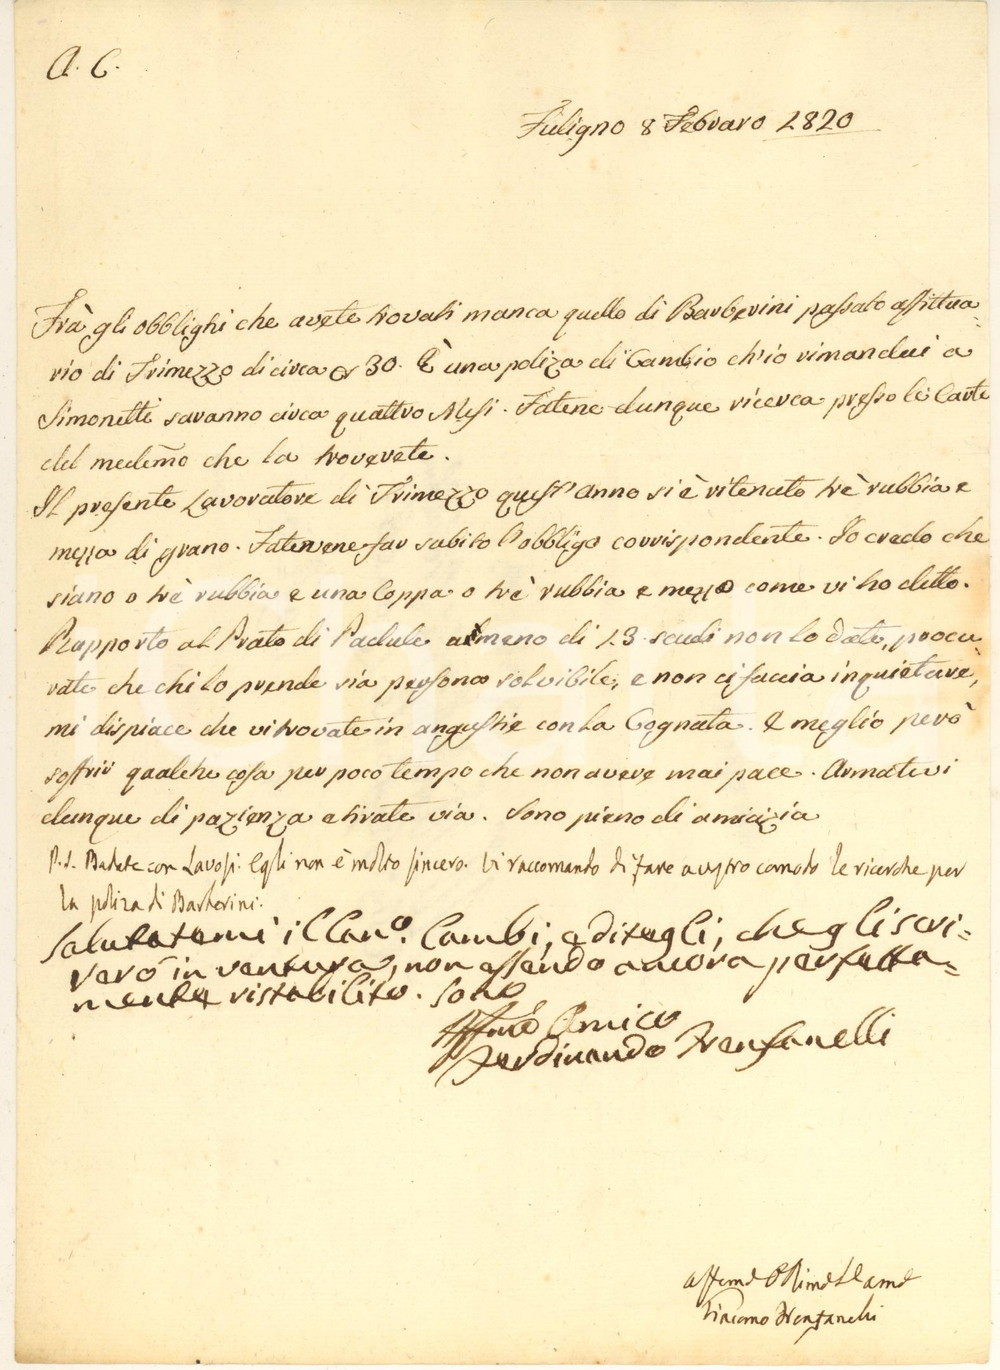 A. C.
Fuligno 8 Febraro 1820
Frà gli obblighi che avete trovati manca quello di Barberini passato affittua=
rio di Trimezzo di circa 30. È una poliza di Cambio ch'io rimandai a
Simonetti saranno circa quattro Mesi. Fatene dunque ricerca presso le Carte
del medemo che la troverete.
Il presente Lavoratore di Trimezzo quest'anno si è ritenuto trè rubbia e
mezza di grano. Fatevene far subito l'obbligo corrispondente. Io credo che
siano o trè rubbia e una Coppa o trè rubbia e mezzo come vi ho detto.
Rapporto al Prato di Padule almeno di 13 scudi non lo date, procu=
rate che chi lo prende sia persona solvibile, e non ci faccia inquietare,
mi dispiace che vi trovate in angustie con la Cognata. È meglio però
soffrir qualche cosa per poco tempo che non avere mai pace. Armatevi
dunque di pazienza e tirate via. Sono pieno di amicizia
P. S. Badate con Lavosi. Egli non è molto sincero. Vi raccomando di fare a vostro comodo le ricerche per
la poliza di Barberini.
Salutatemi il Can.º Cambi, e ditegli, che gli scri=
verò in ventura, non essendo ancora perfetta=
mente ristabilito. Sono
Affmo Amico
Ferdinando Frenfanelli
affemo
Giacomo Frenfanelli